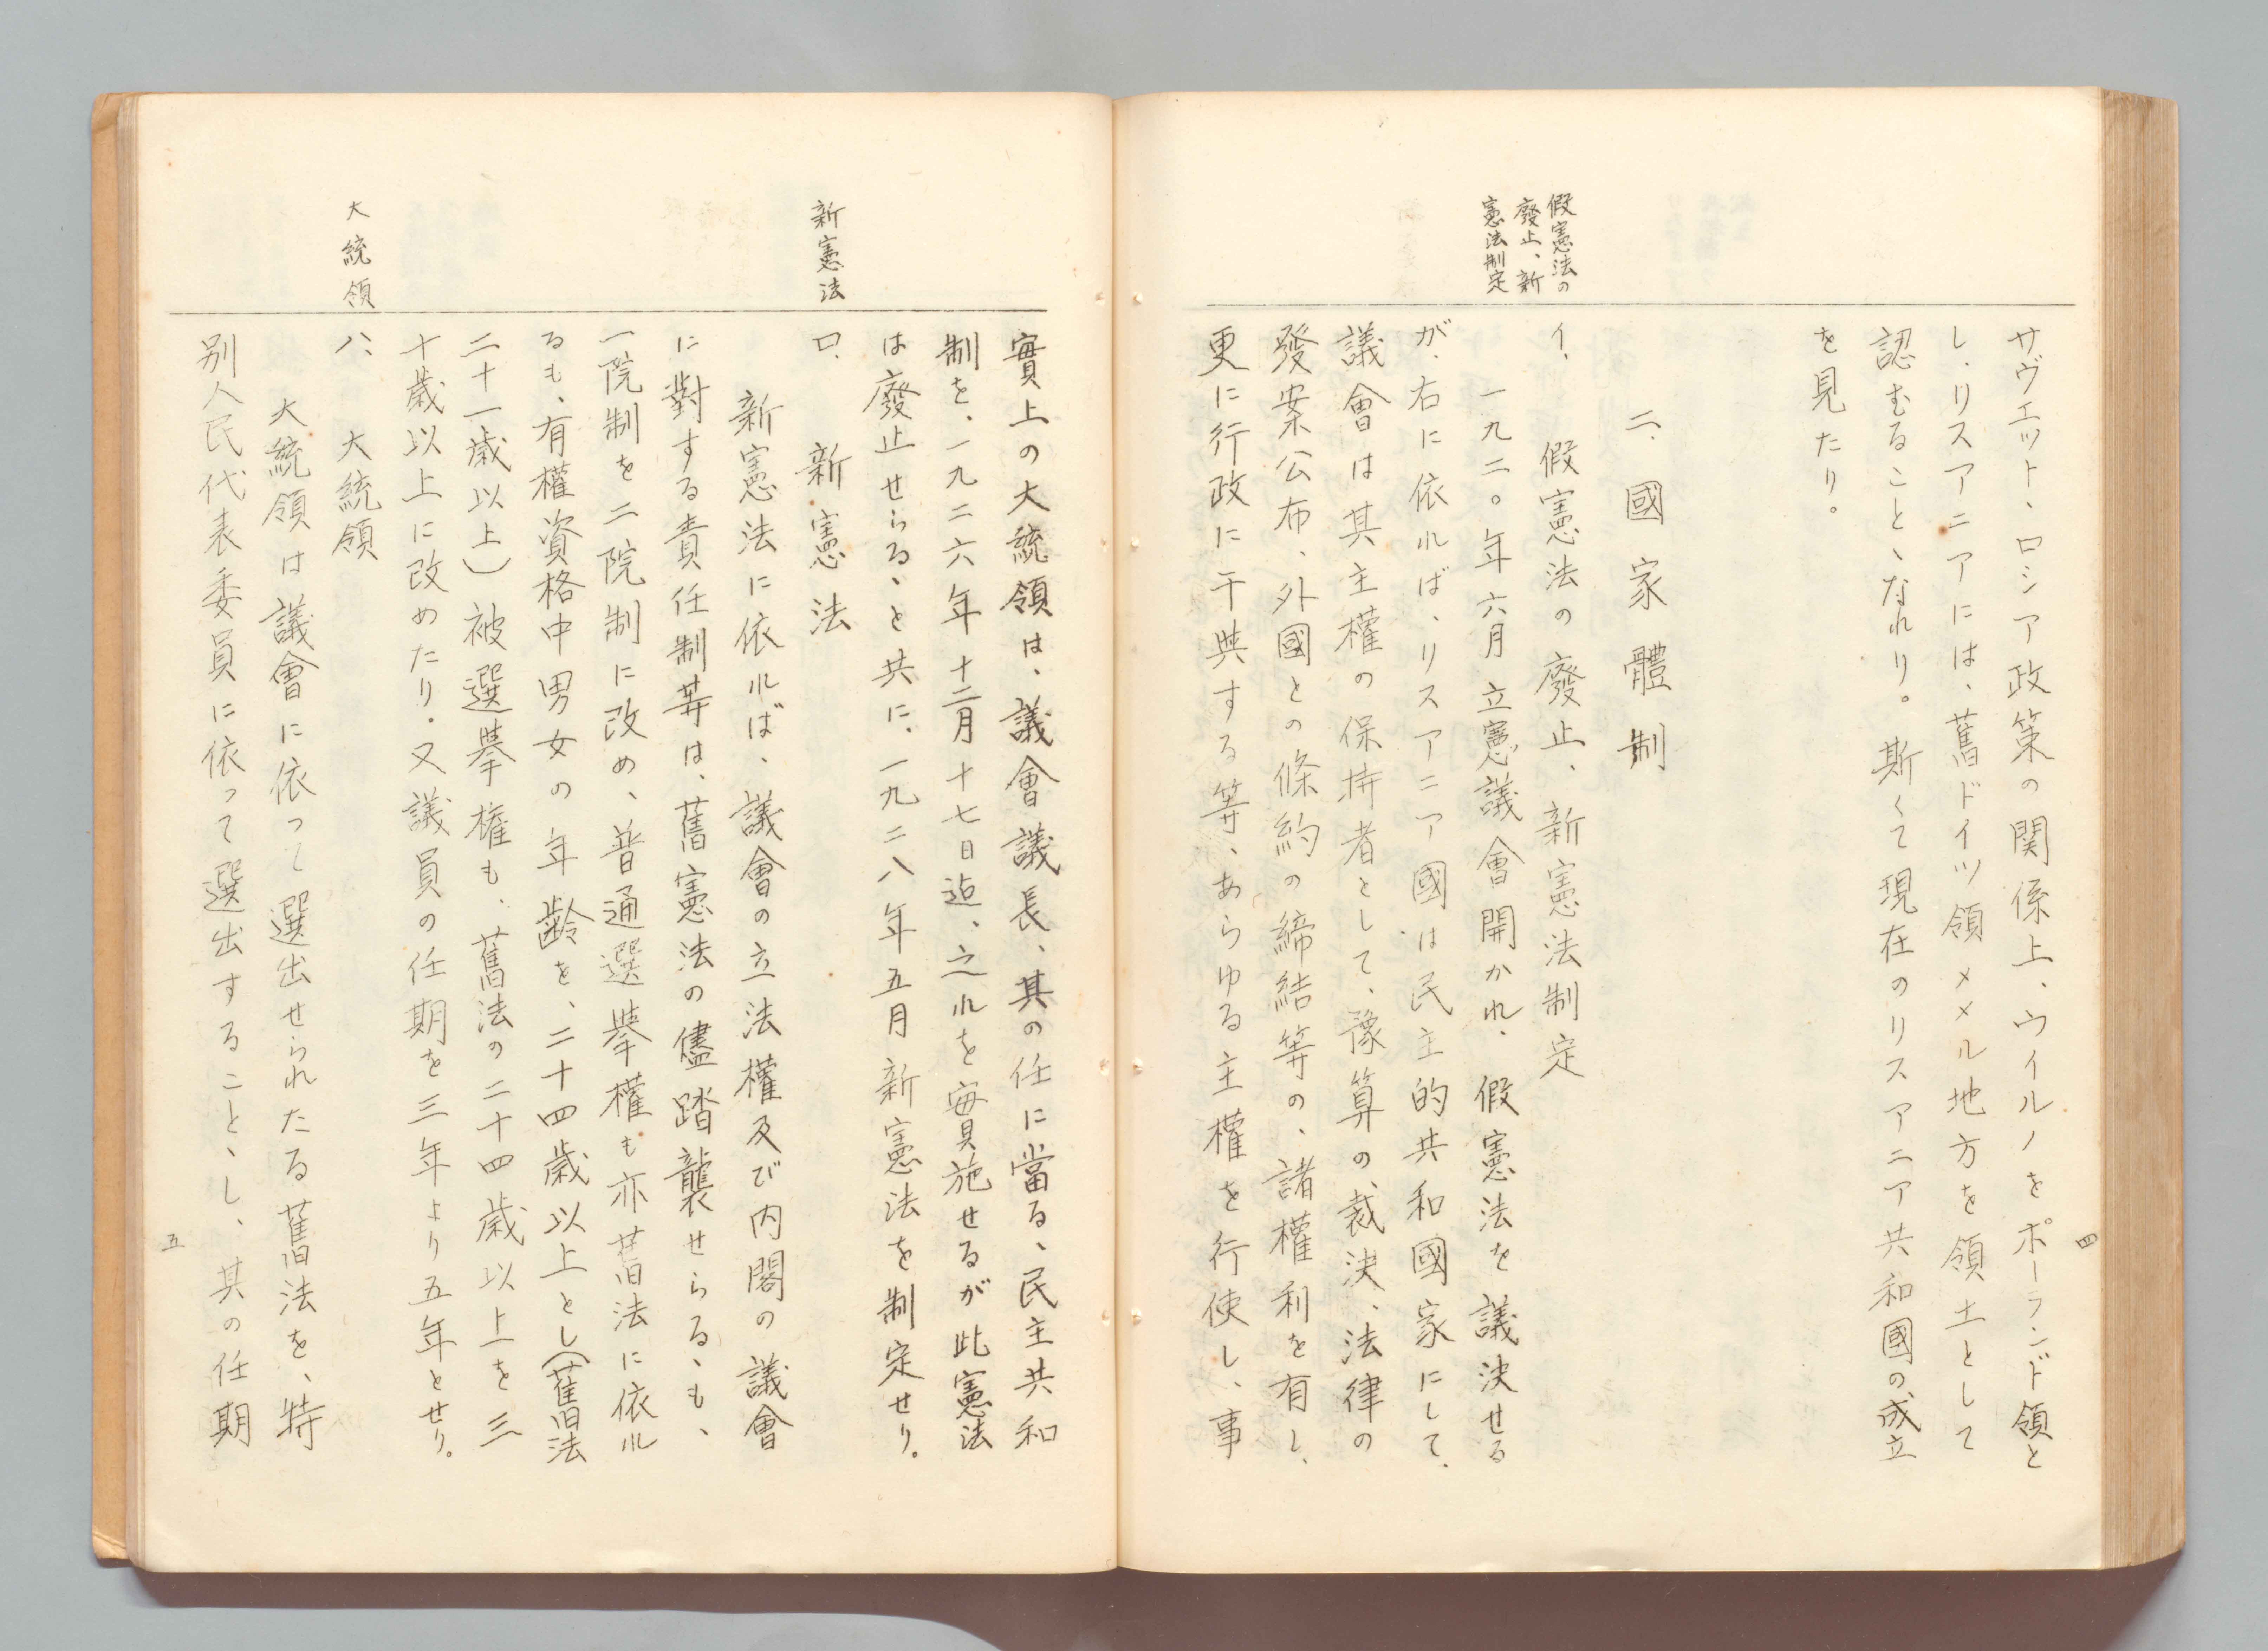 四
サヴエット、ロシア政策の関係上、ウイルノをポーランド領と
し、リスアニアには、舊ドイツ領メメル地方を領土として
認むることゝなれり。斯くて現在のリスアニア共和國の成立
を見たり。
二、國家體制
假憲法の
廢止、新
憲法制定
イ、假憲法の廢止、新憲法制定
一九二〇年六月立憲議會開かれ、假憲法を議決せる
が、右に依れば、リスアニア國は民主的共和國家にして、
議會は其主權の保持者として、豫算の裁決、法律の
發案公布、外國との條約の締結等の、諸權利を有し、
更に行政に干與する等、あらゆる主權を行使し、事
實上の大統領は、議會議長、其の任に當る、民主共和
制を、一九二六年十二月十七日迠、之れを實施せるが此憲法
は廢止せらるゝと共に、一九二八年五月新憲法を制定せり。
新憲法
ロ、新憲法
新憲法に依れば、議會の立法權及び内閣の議會
に對する責任制等は、舊憲法の儘踏襲せらるゝも、
一院制を二院制に改め、普通選挙權も亦舊法に依れ
るも、有權資格中男女の年齢を、二十四歳以上とし(舊法
二十一歳以上)被選挙權も、舊法の二十四歳以上を三
十歳以上に改めたり。又議員の任期を三年より五年とせり。
大統領
ハ、大統領
大統領は議會に依って選出せられたる舊法を、特
別人民代表委員に依って選出することゝし、其の任期
五